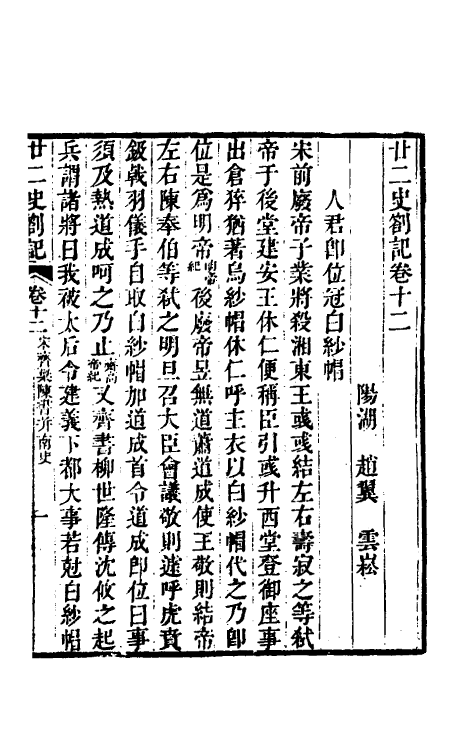 廿二史劄記卷十二
陽湖 趙翼 雲崧
人君卽位冠白紗帽
宋前廢帝子業將殺湘東王彧彧結左右壽寂之等弒
帝于後堂建安王休仁便稱臣引彧升西堂登御座事
出倉猝猶著烏紗帽休仁呼主衣以白紗帽代之乃卽
位是爲明帝南帝紀後廢帝昱無道蕭道成使王敬則結帝
左右陳奉伯等弒之明旦召大臣會議敬則遽呼虎賁
鈒戟羽儀手自取白紗帽加道成首令道成卽位曰事
須及熱道成呵之乃止齊高帝紀又齊書柳世隆傳沈攸之起
兵謂諸將曰我被太后令建義下都大事若尅白紗帽
廿二史劄記 卷十二 宋齊梁陳書并南史 一